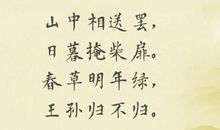 山中相送罢，
日暮掩柴扉。
春草明年绿，
王孙归不归。